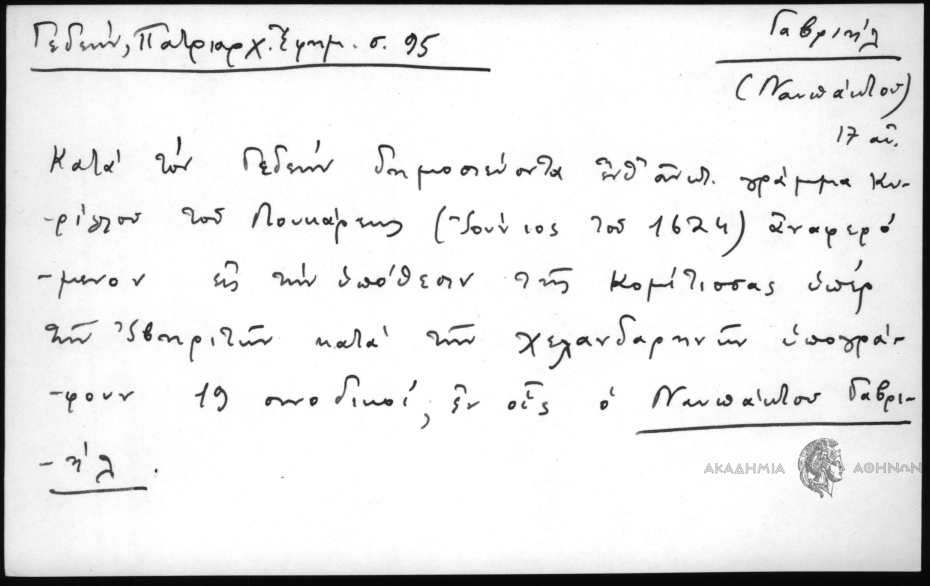 Γεδεών, Πατριαρχ. Ἐφημ. σ. 95
Γαβριήλ
(Ναυπάκτου)
17 αἰ.
Κατά τόν Γεδεών δημοσιεύοντα γράμμα Κυ-
-ρίλλου τοῦ Λουκάρεως (Ἰούνιος τοῦ 1624) ἀναφερό
-μενον εἰς τήν ὑπόθεσιν τῆς Κομίτισσας ὑπέρ
τῶν Ἰβηριτῶν κατά τῶν Χελανδαρηνῶν ὑπογρά-
-φουν 19 συνοδικοί, ἐν οἷς ὁ Ναυπάκτου Γαβρι-
-ήλ.
ΑΚΑΔΗΜΙΑ ΑΘΗΝΩΝ